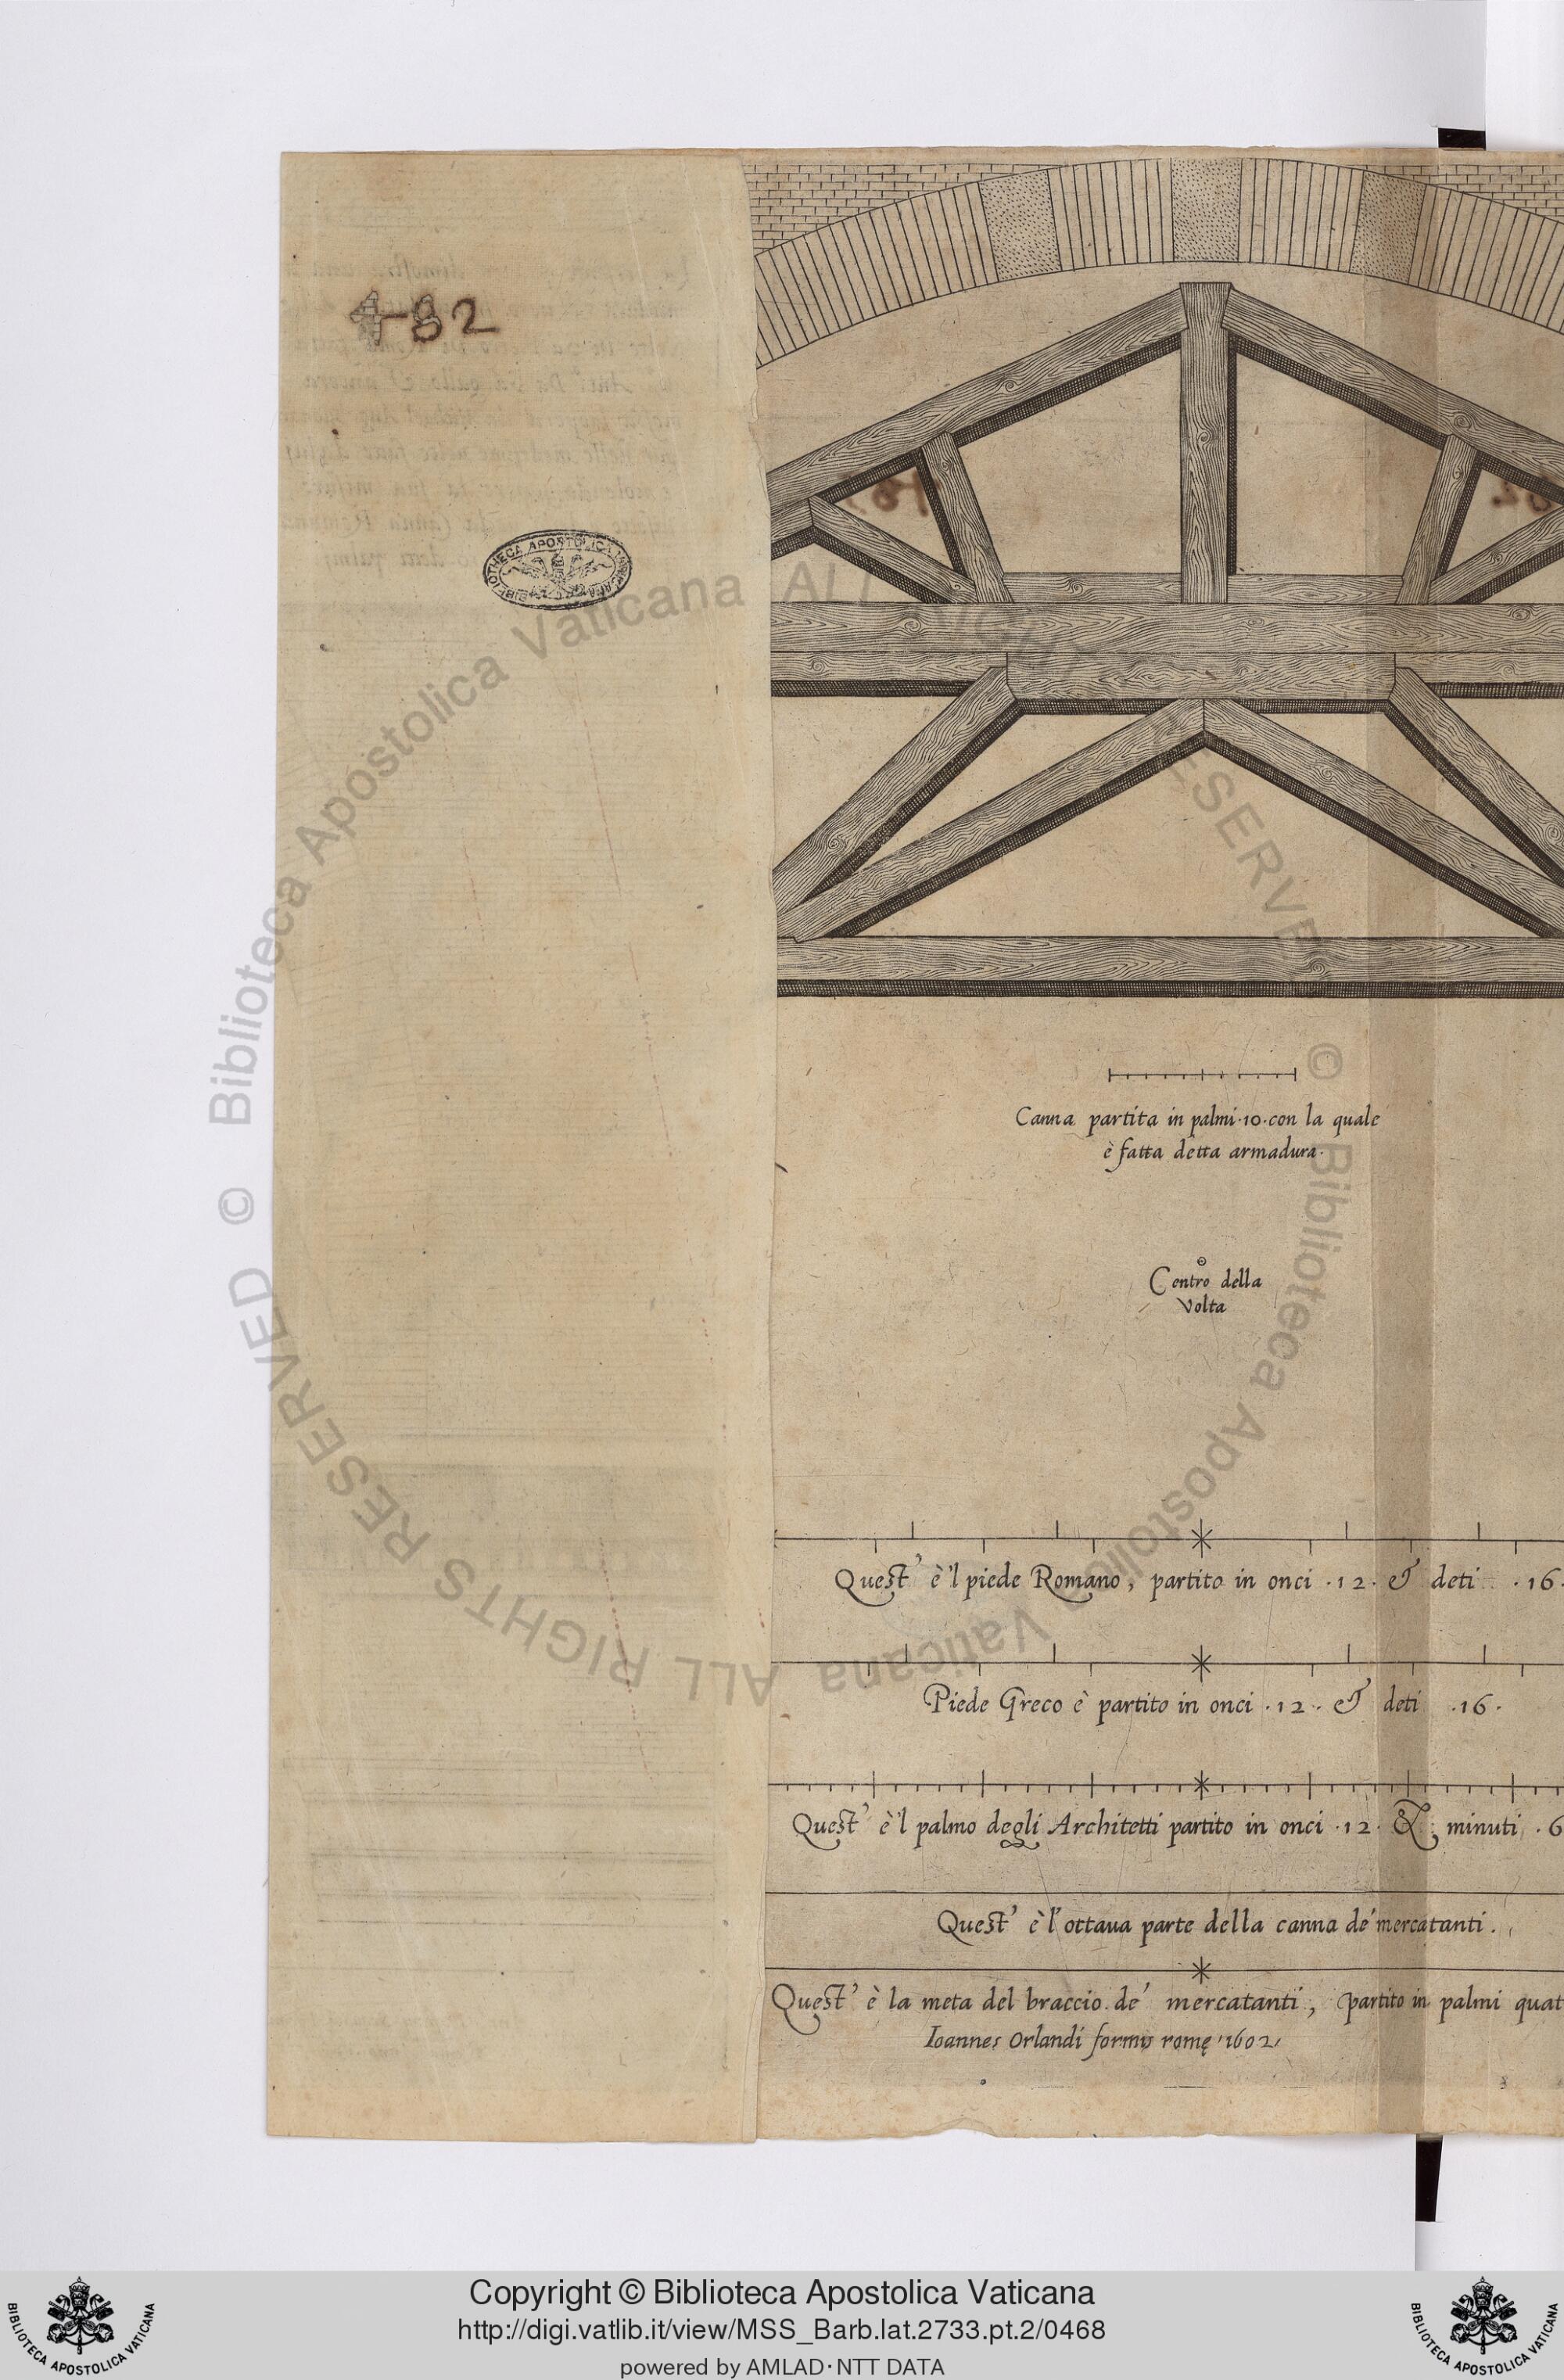 482
BIBLIOTHECA APOSTOLICA
Canna partita in palmi·10·con la quale
è fatta detta armadura·
Centro della
Volta
Quest' è'l piede Romano, partito in onci ·12· & deti ·16·
Piede Greco è partito in onci ·12· & deti ·16·
Quest' è'l palmo degli Architetti partito in onci ·12· & minuti ·6
Quest' è l'ottaua parte della canna de' mercatanti.
Quest' è la meta del braccio de' mercatanti, partito in palmi quat
Ioannes Orlandi formis romę 1602
© Biblioteca Apostolica Vaticana ALL RIGHTS RESERVED
© Biblioteca Apostolica Vaticana ALL RIGHTS RESERVED
Copyright © Biblioteca Apostolica Vaticana
http://digi.vatlib.it/view/MSS_Barb.lat.2733.pt.2/0468
powered by AMLAD·NTT DATA
BIBLIOTECA APOSTOLICA VATICANA
BIBLIOTECA APOSTOLICA VATICANA